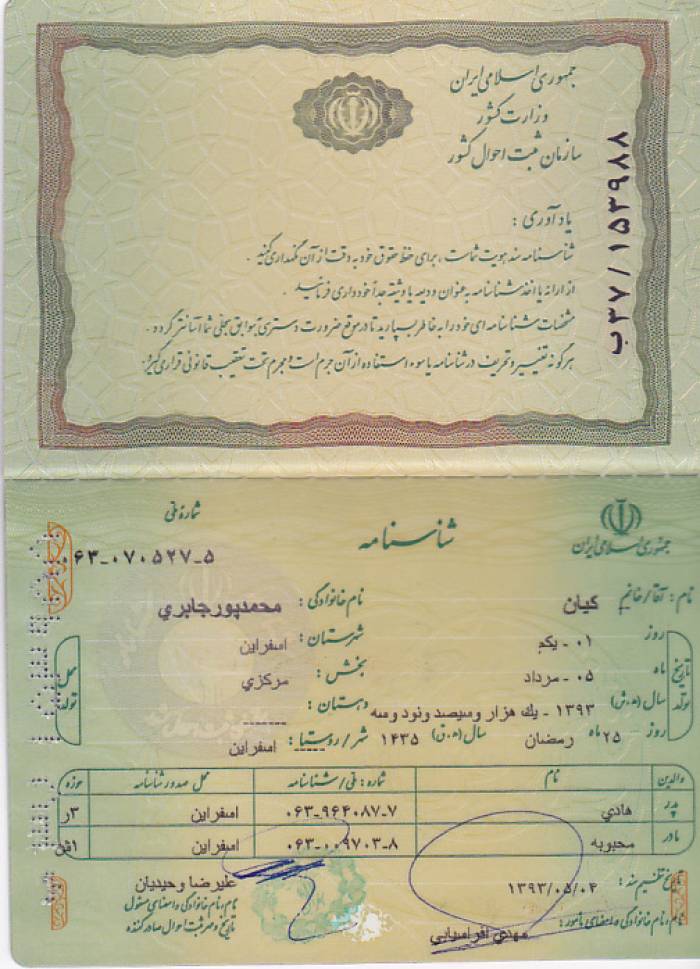 جمهوری اسلامی ایران
وزارت کشور
سازمان ثبت احوال کشور
ب ۳۷/۱۵۳۹۸۸
یادآوری :
شناسنامه سند هویت شماست ، برای حفظ حقوق خود به دقت از آن نگهداری کنید .
از ارائه یا اخذ شناسنامه به عنوان ودیعه یا وثیقه جداً خودداری فرمائید .
مشخصات شناسنامه ای خود را به خاطر بسپارید تا در موقع ضرورت دسترسی به سوابق سجلی شما آسانتر گردد .
هرگونه تغییر و تحریف در شناسنامه یا سوء استفاده از آن جرم است و مجرم تحت تعقیب قانونی قرار می گیرد .
جمهوری اسلامی ایران
شناسنامه
شمارهٔ ملی
۰۶۳-۰۷۰۵۲۷-۵
نام : آقا/خانم کیان نام خانوادگی : محمدپورجابري
تاریخ تولد روز ۰۱ - یکم شهرستان : اسفراین محل تولد
ماه ۰۵ - مرداد بخش : مرکزي
سال (ه.ش) ۱۳۹۳ - یك هزار وسیصد ونود وسه دهستان : ------
روز ۲۵ ماه رمضان سال (ه.ق) ۱۴۳۵ شهر/روستا : اسفراین
والدین نام شماره : ملی/شناسنامه محل صدور شناسنامه حوزه
پدر هادي ۰۶۳-۹۶۴۰۸۷-۷ اسفراین ۳ر
مادر محبوبه ۰۶۳-۰۰۹۷۰۳-۸ اسفراین ۱ش
تاریخ تنظیم سند : ۱۳۹۳/۰۵/۰۴ علیرضا وحیدیان
نام، نام خانوادگی و امضای مأمور : مهدي افراسیابي
نام، نام خانوادگی و امضای مسئول
تاریخ و مهر ثبت احوال صادرکننده